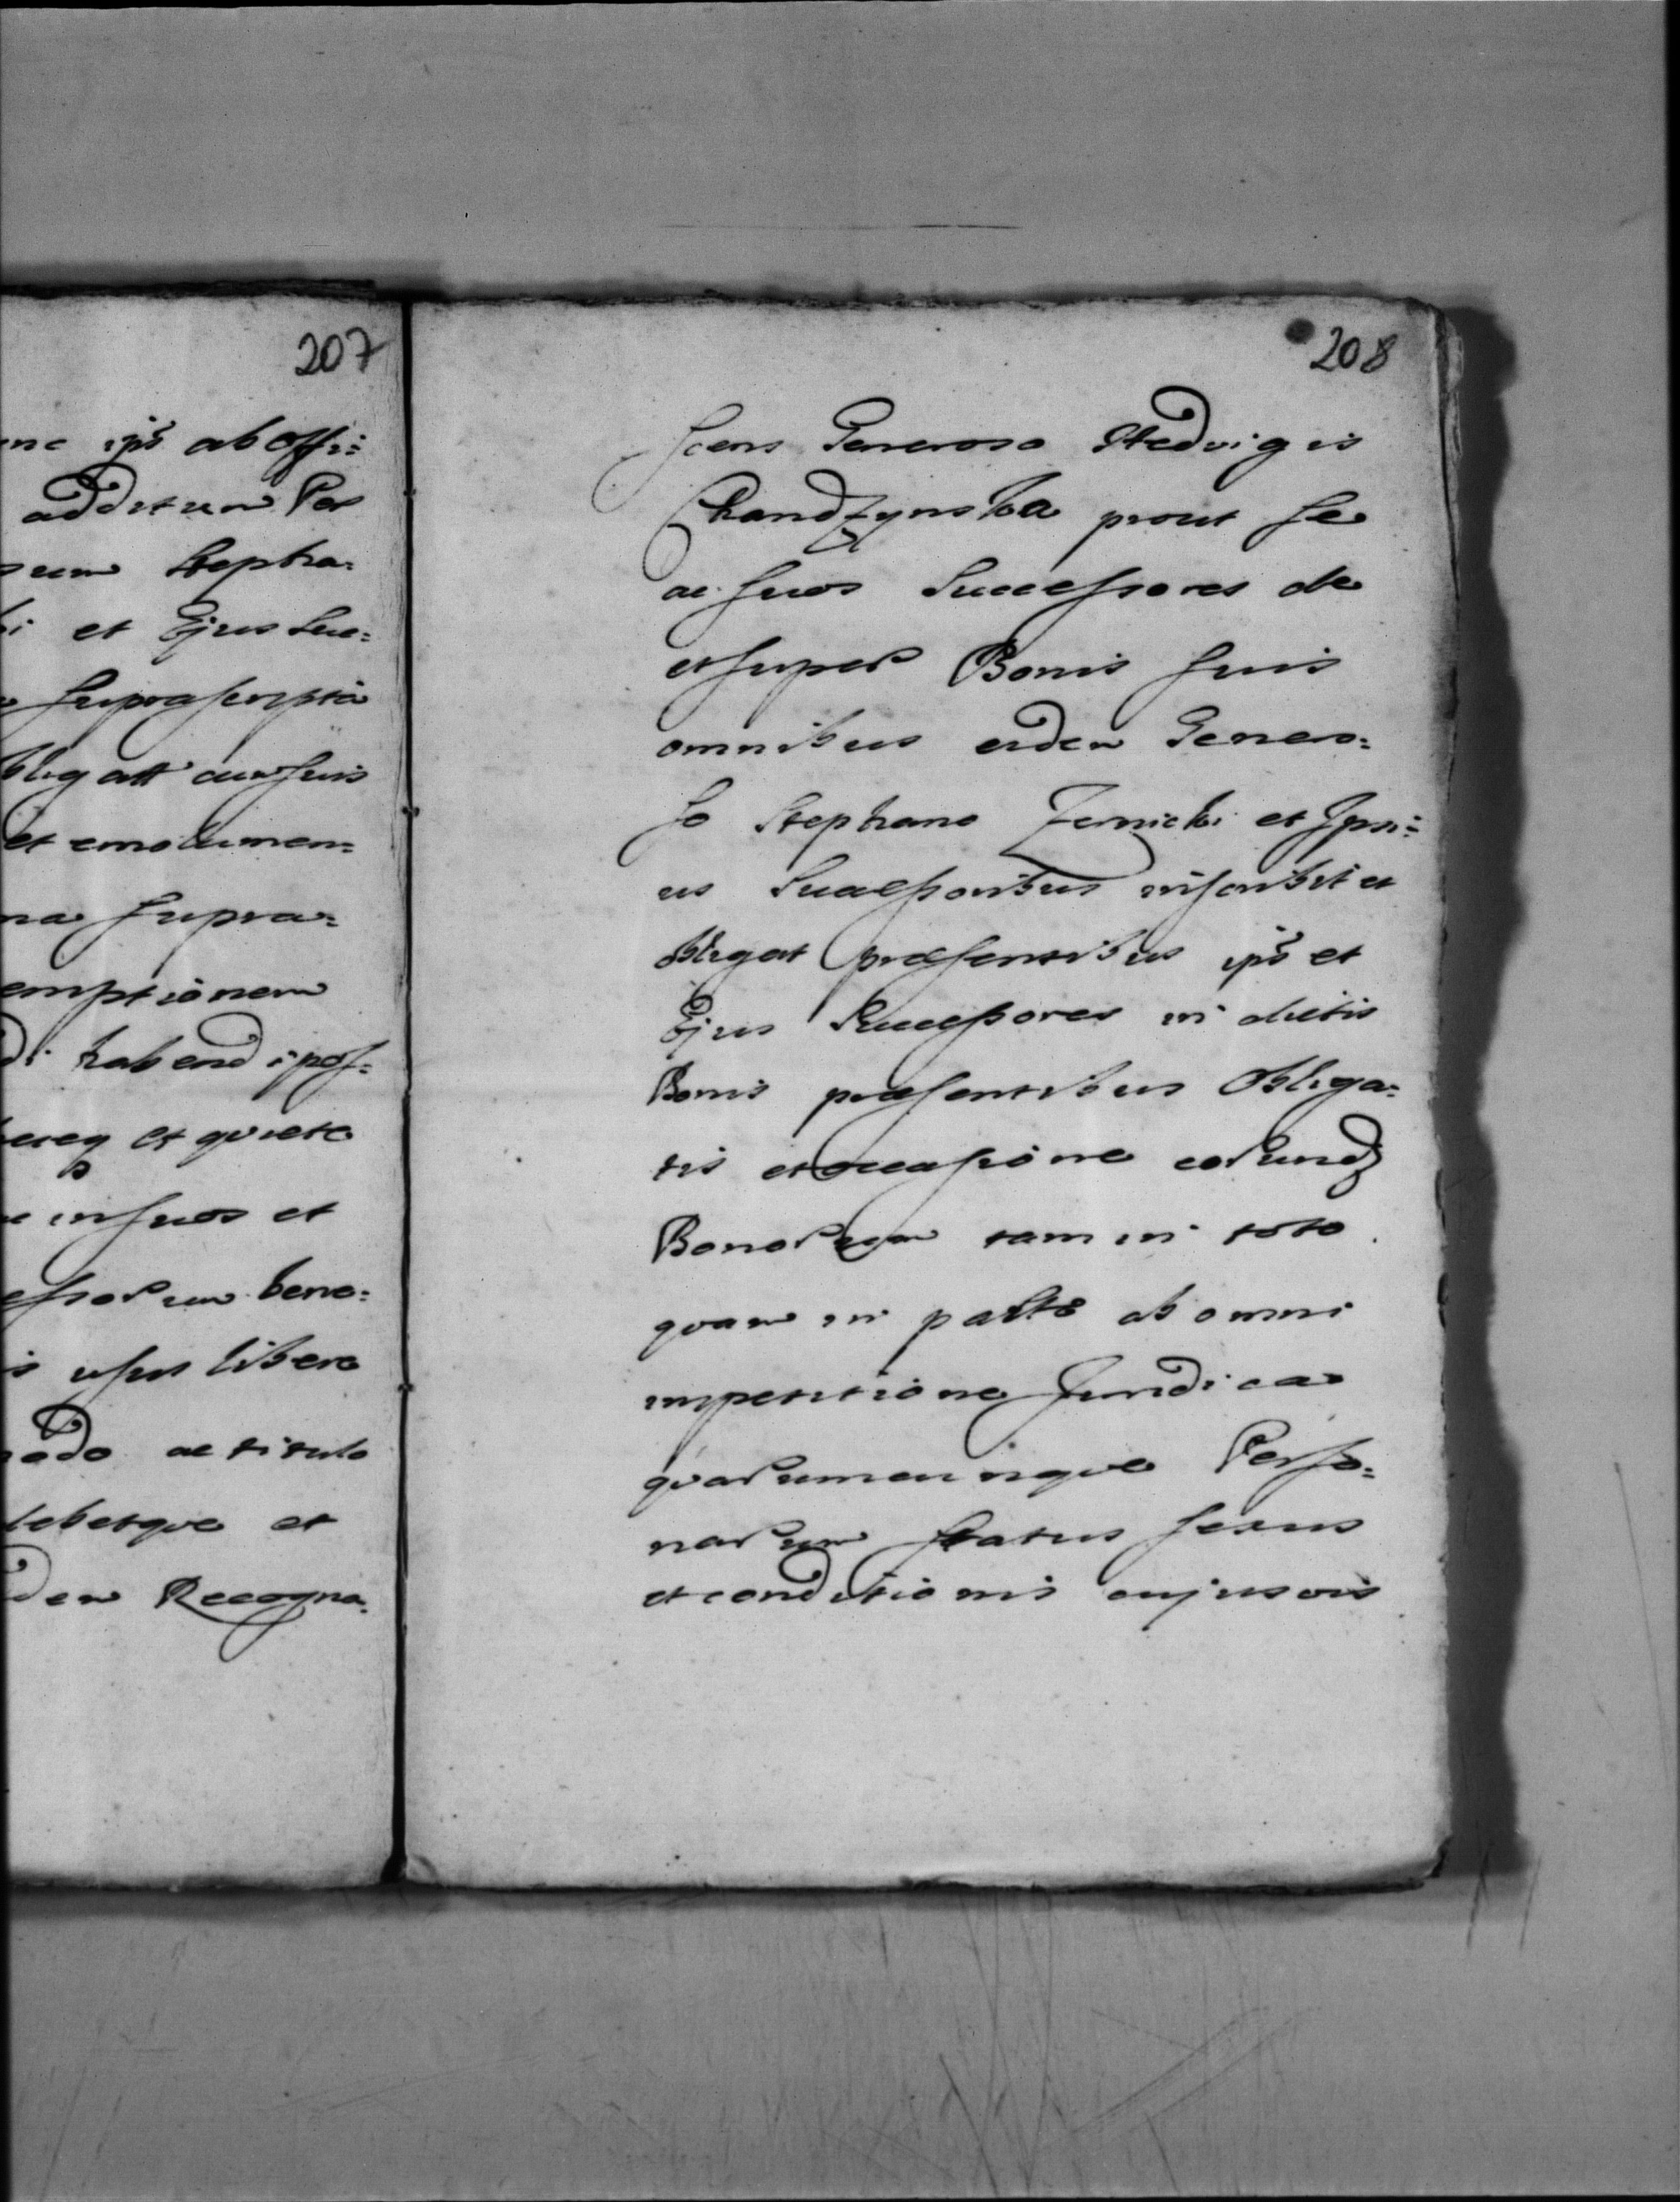 207
ips ab offi:
additum Per
Stepha:
et Ejus Suc:
suprascripta
cum suis
et emolumen:
Supra:
emptionem
habendi pos:
et quiete
in suos et
bene:
usus libere
ac titulo
debetque et
Recogno:
208
scens Generosa Hedvigis
Chandzynska prout se
ac suos Successores de
et super Bonis suis
omnibus eidem Genero:
so Stephano Zernicki et Ipsi:
us Successoribus inscribit et
obligat præsentibus ips et
Ejus Successores in dictis
Bonis præsentibus Obliga:
tis et occasione eorund
Bonorum tam in toto
quam in parte ab omni
impetitione Juridica
quarumcunque Perso:
narum status sexus
et conditionis cujusvis